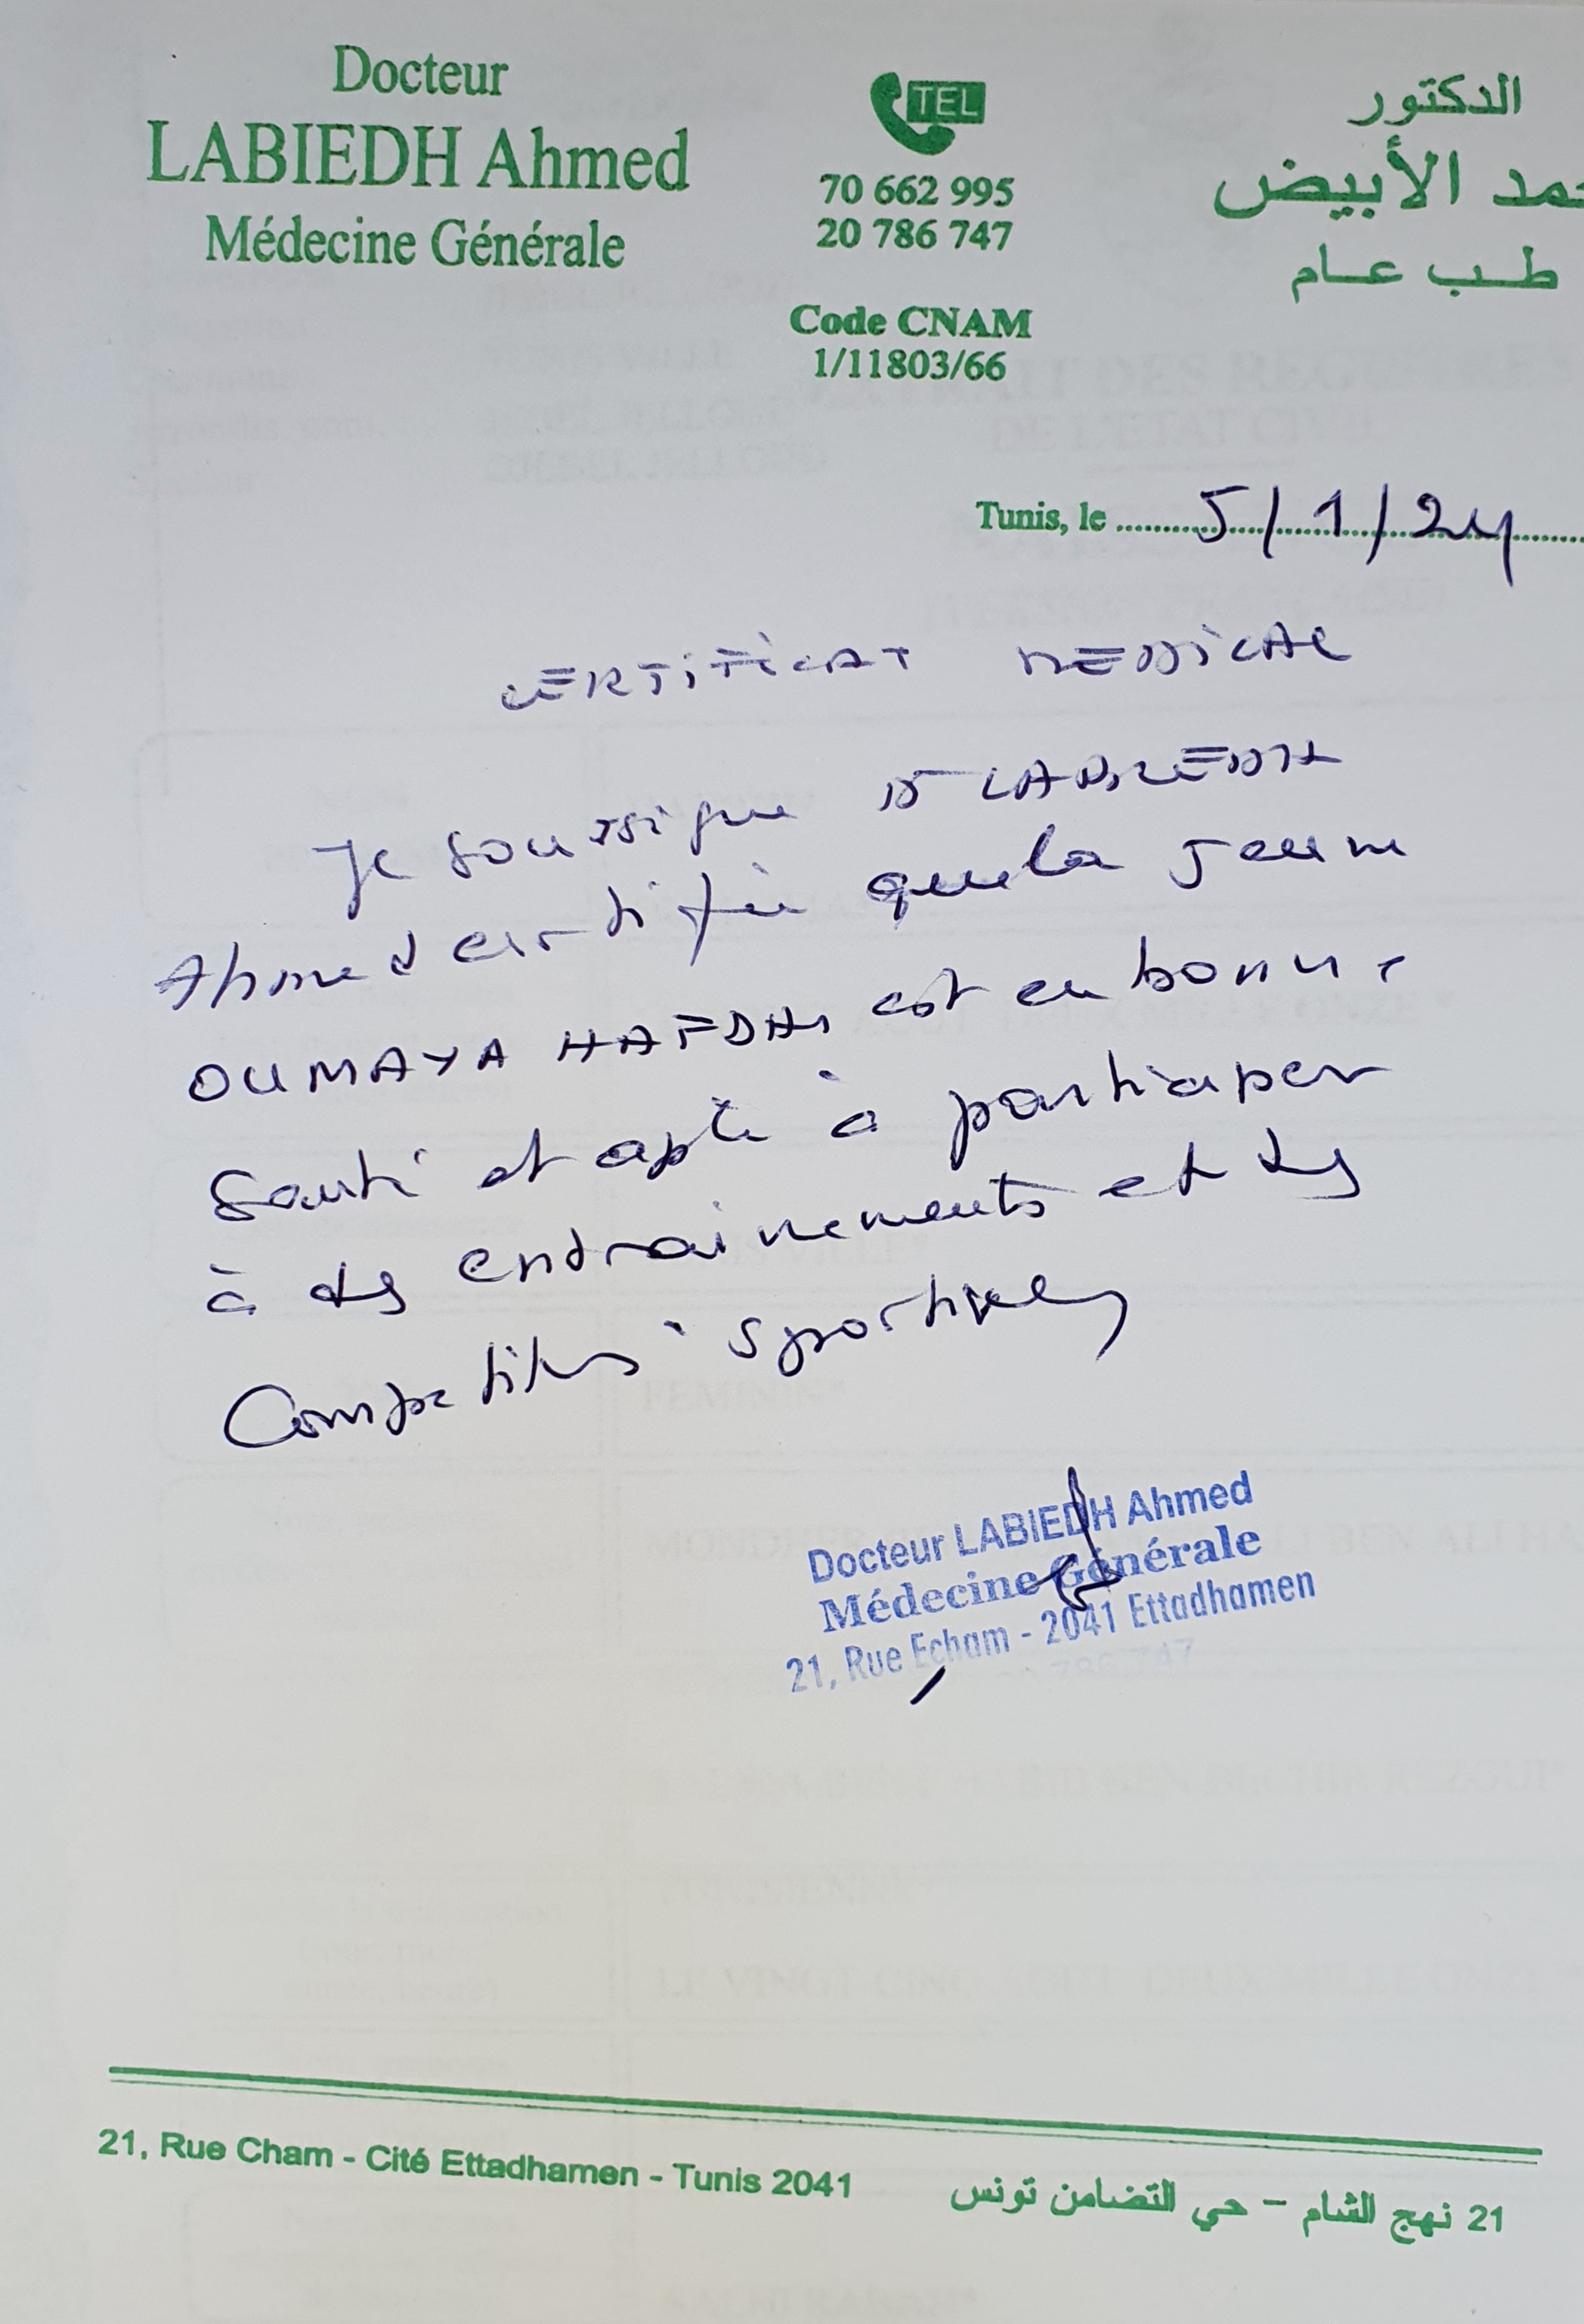 Docteur
LABIEDH Ahmed
Médecine Générale
TEL
70 662 995
20 786 747
Code CNAM
1/11803/66
الدكتور
حمد الأبيض
طب عام
Tunis, le 5/1/24
CERTIFICAT MEDICAL
Je soussigné Dr LABIEDH
Ahmed certifie que la jeune
OUMAYA HAFDHI est en bonne
santé et apte à participer
à des entrainements et des
Competitions sportives
Docteur LABIEDH Ahmed
Médecine Générale
21, Rue Echam - 2041 Ettadhamen
21, Rue Cham - Cité Ettadhamen - Tunis 2041
21 نهج الشام - حي التضامن تونس